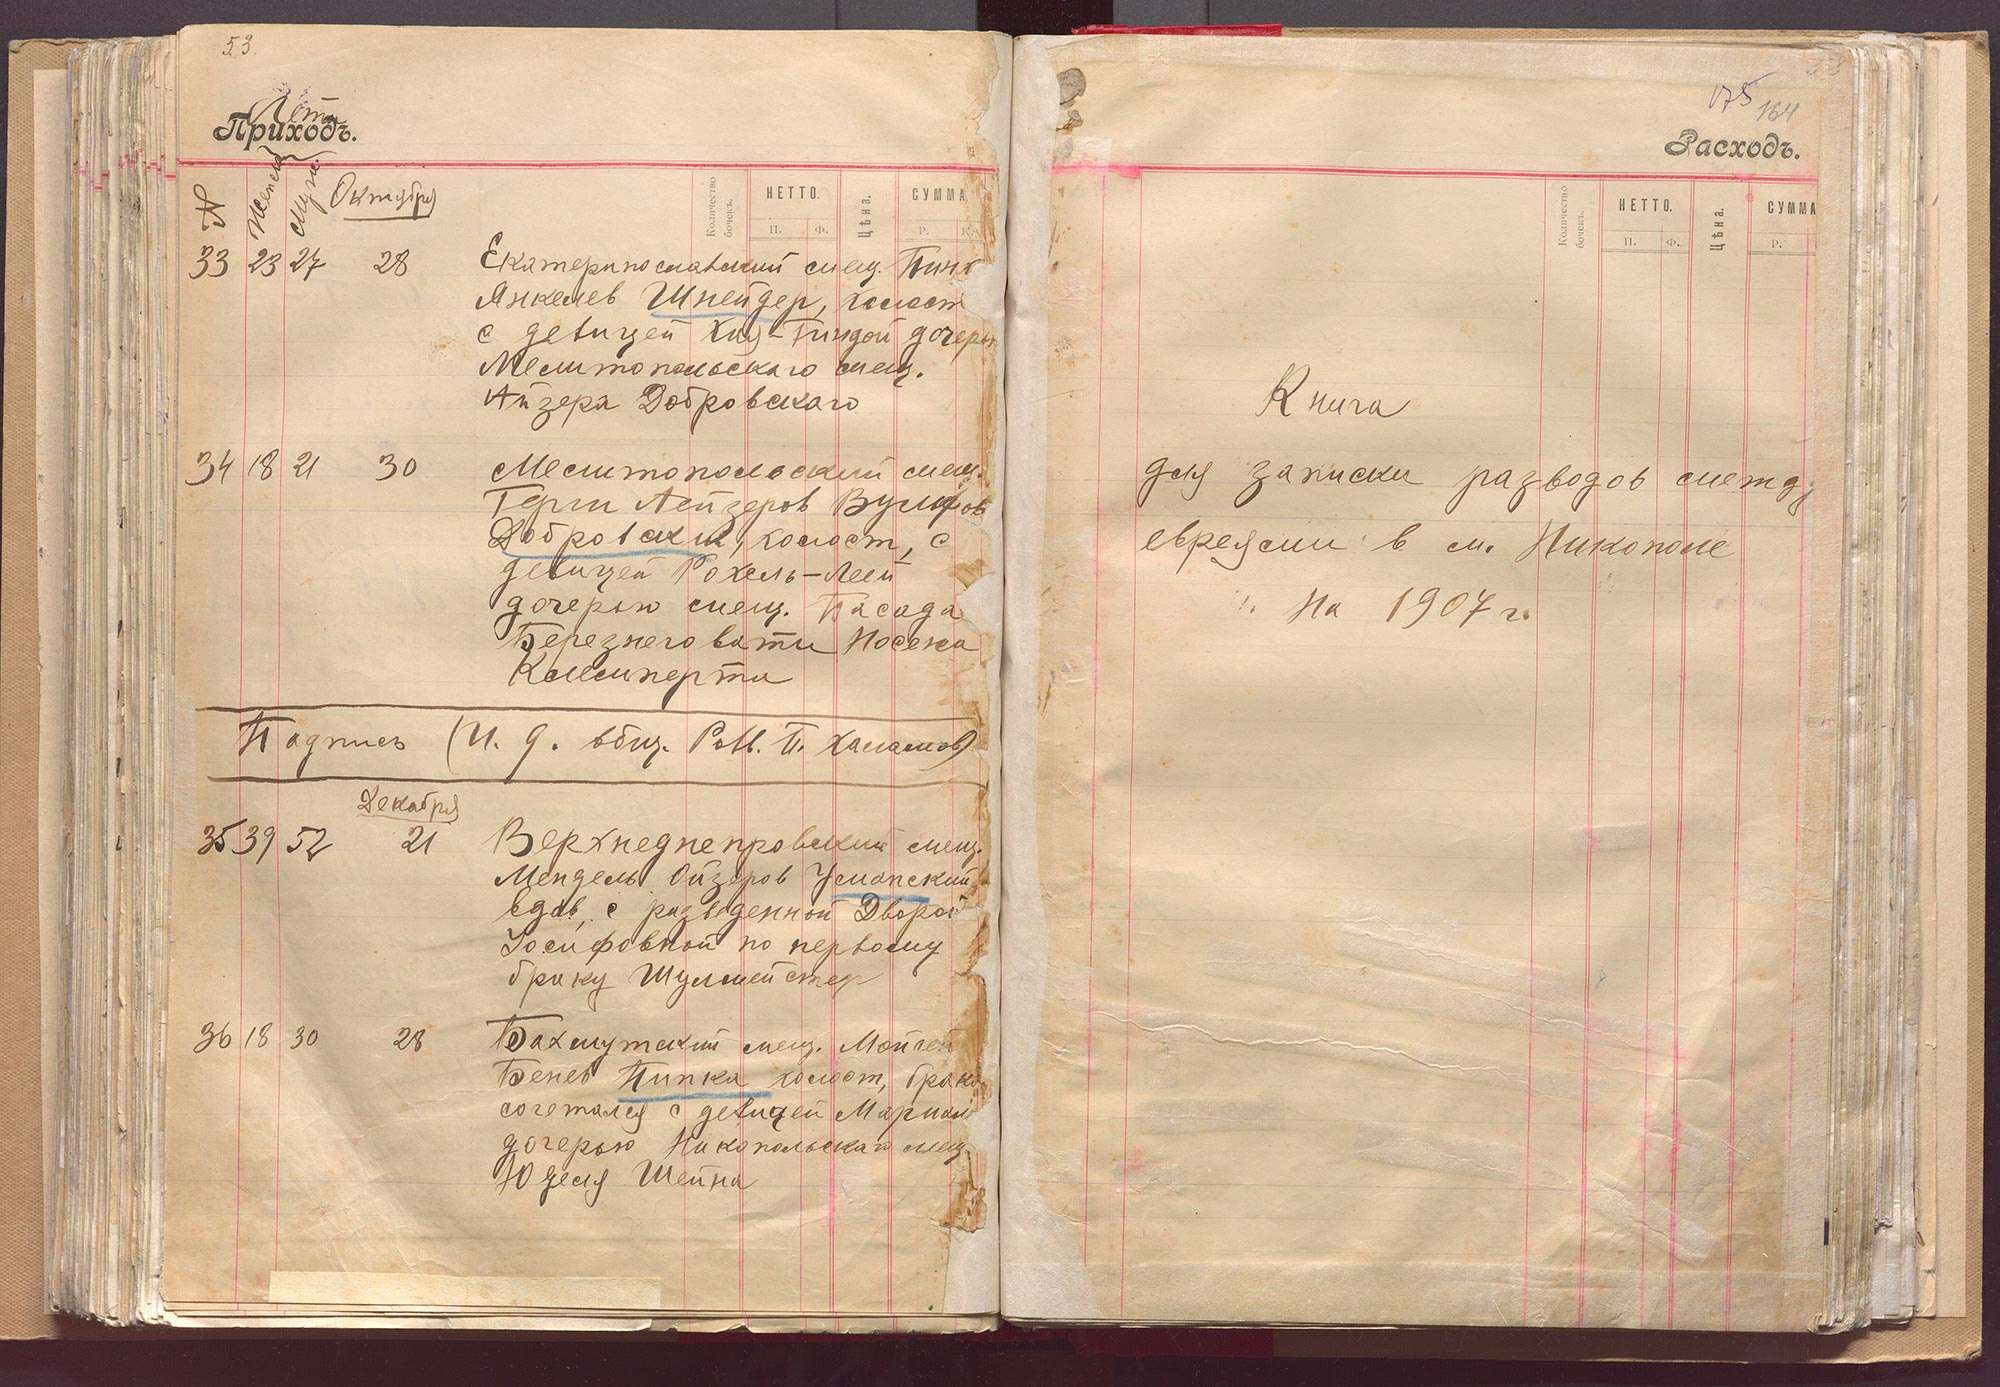 53.
Лета
Приходъ.
№
Женск.
Муж.
Октября
Количество бочекъ.
НЕТТО.
П.
Ф.
Цѣна.
СУММА
Р.
К.
33 23 27 28 Екатеринославский мещ.
Янкелев Шнейдер, холост
с девицей Хая-Гиндой дочерью
Мелитопольскаго мещ.
Айзера Добровскаго
34 18 21 30 Мелитопольский мещ.
Герш Лейзеров Вульфов
Добровский, холост, с
девицей Рохель-Леей
дочерью мещ. Посада
Березнеговати Носена
Клемперта
Подпись (И. д. общ. Рав. П. Халамов)
Декабря
35 39 52 21 Верхнеднепровский мещ.
Мендель Ойзеров Усманский
вдов, с разведенной Дворой
Иосифовной по первому
браку Шулмейстер
36 18 30 28 Бахмутский мещ. Мойсей
Бенев Пипка холост, брако
сочетался с девицей Мариам
дочерью Никопольскаго мещ.
Юделя Шейна
175
164
Расходъ.
Количество бочекъ.
НЕТТО.
П.
Ф.
Цѣна.
СУММА
Р.
Книга
для записки разводов между
евреями в м. Никополе
на 1907 г.